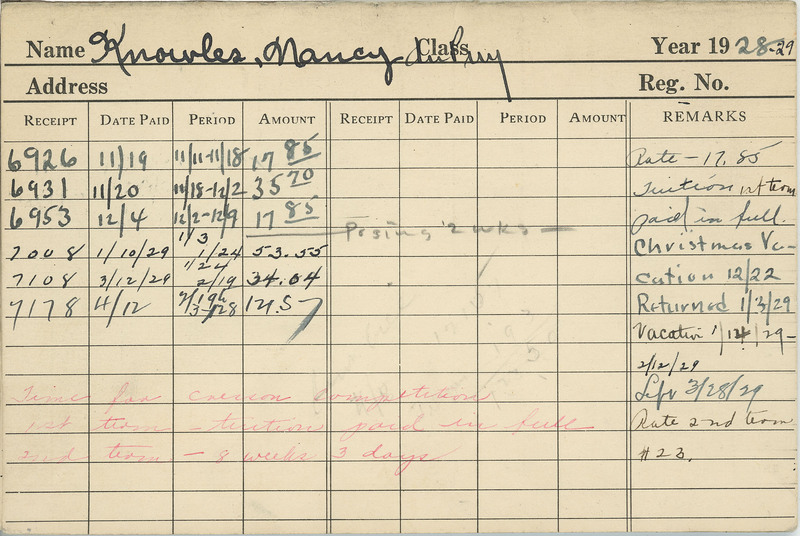 Name Knowles, Nancy DuPuy Class Year 1928-29
Address Reg. No.
RECEIPT DATE PAID PERIOD AMOUNT RECEIPT DATE PAID PERIOD AMOUNT REMARKS
6926 11/19 11/11-11/18 17 85 Rate - 17.85
6931 11/20 11/18-12/2 35 70 Tuition 1st term
6953 12/4 12/2-12/9 17 85 paid in full.
Posing 2 wks
7008 1/10/29 1/3 1/24 53.55 Christmas Va-
7108 3/12/29 1/24 2/19 34.04 cation 12/22
7178 4/12 Returned 1/3/29
Vacation 1/24/29-
2/12/29
Time for competition Left 3/28/29
1st term - tuition paid in full Rate 2nd term
2nd term - 8 weeks 3 days #23.